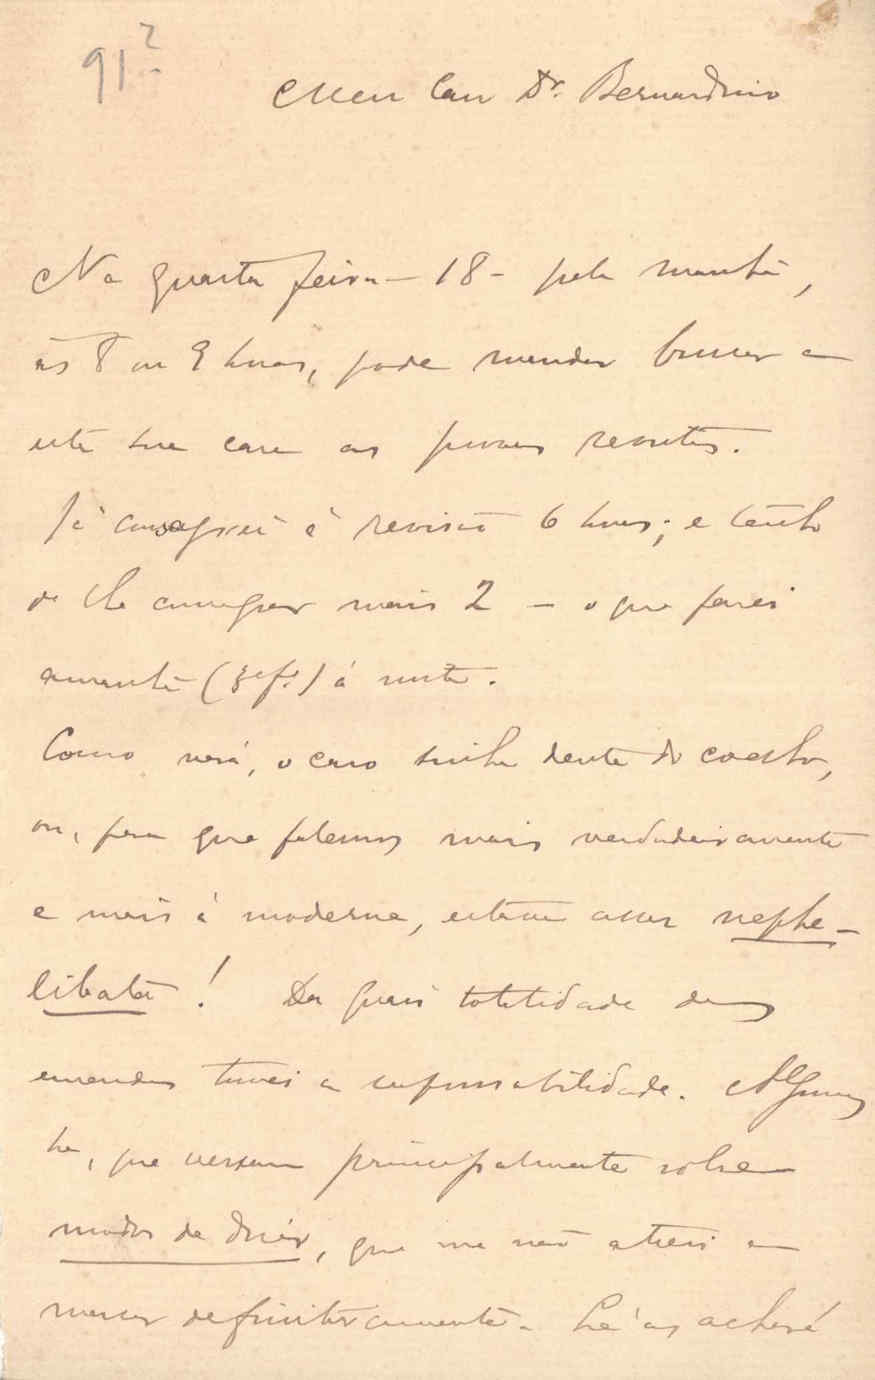 91?
Meu Caro Dr. Bernardino
Na quarta feira – 18 – pela manhã,
ás 8 ou 9 horas, pode mandar buscar a
esta sua casa as provas revistas.
Já consagrei á revisão 6 horas; e tenho
de lhe consagrar mais 2 – o que farei
amanhã (3ª fª) á noite.
Como verá, o caso tinha dente de coelho,
ou, para que falemos mais verdadeiramente
e mais á moderna, estava assaz nephe-
libata! Da quasi totalidade das
emendas tomei a responsabilidade. Algumas
ha, que versam principalmente sobre
modos de dizer, que me não atrevi a
definitivamente. Lá as achará